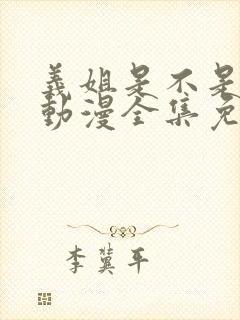 義姐是不是
動漫全集免
李冀平